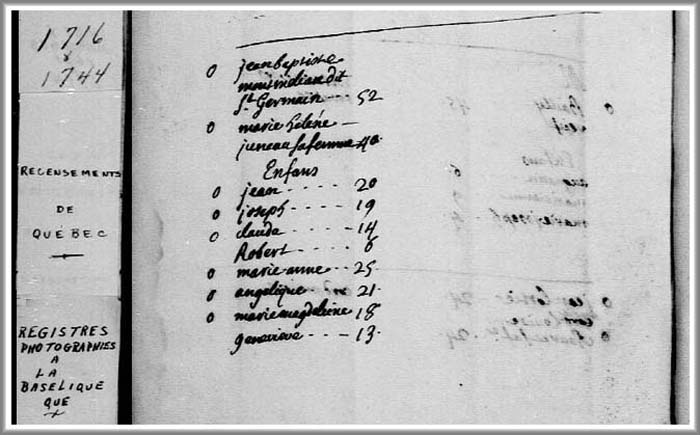 1716
1744
RECENSEMENTS
DE
QUÉBEC
REGISTRES
PHOTOGRAPHIES
A
LA
BASELIQUE
QUE
o jean baptiste
dit
St. Germain 52
o marie heléne
juneau sa femme 40
Enfans
o jean 20
o joseph 19
o claude 14
Robert 6
o marie anne 25
o angelique 21
o marie magdeleine 18
genevieve 13